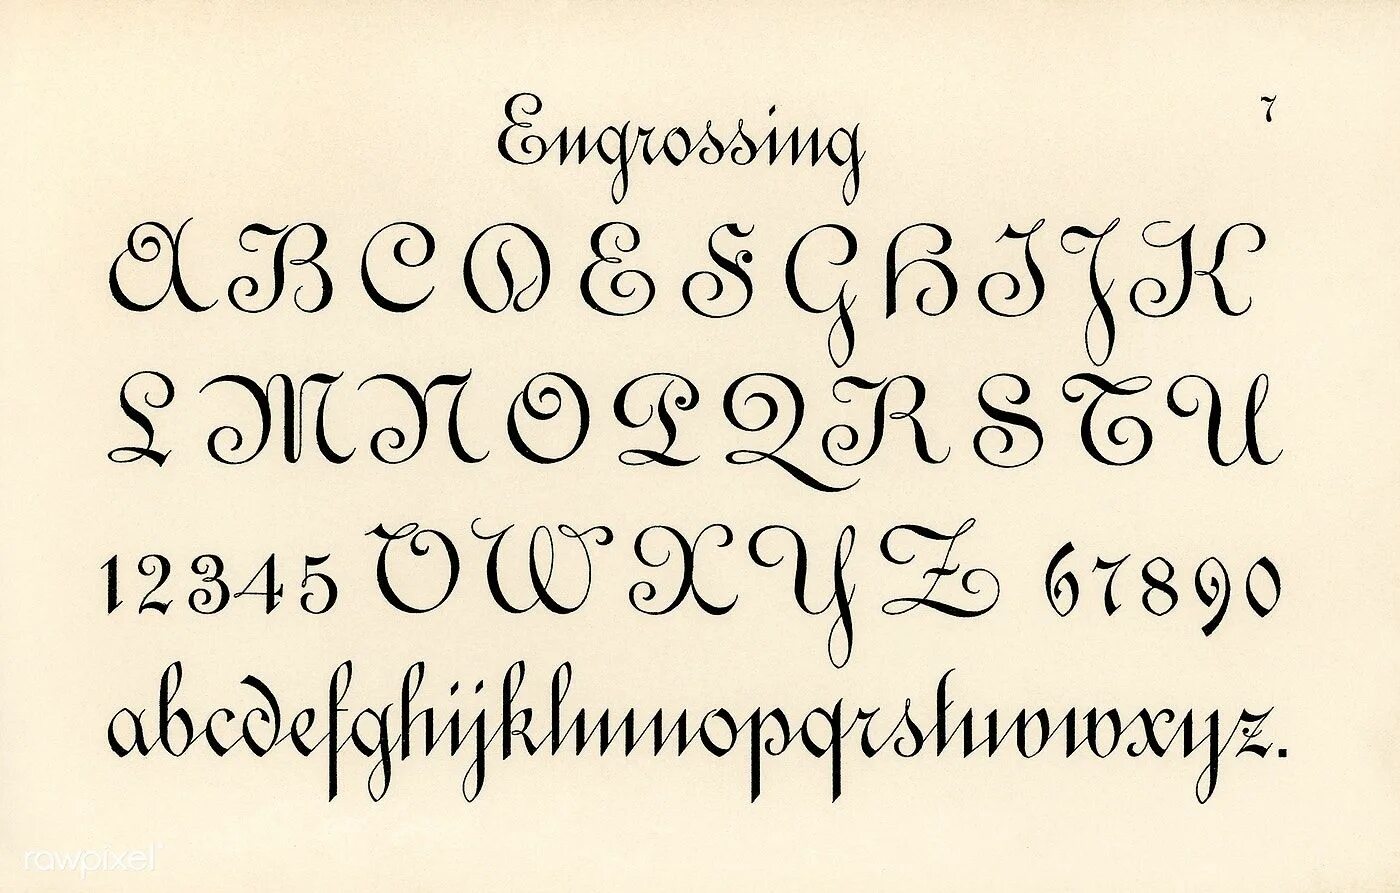 Engrossing
7
ABCDEFGHIJK
LMNOPQRSTU
12345 VWXYZ 67890
abcdefghijklmnopqrstuvwxyz.
rawpixel